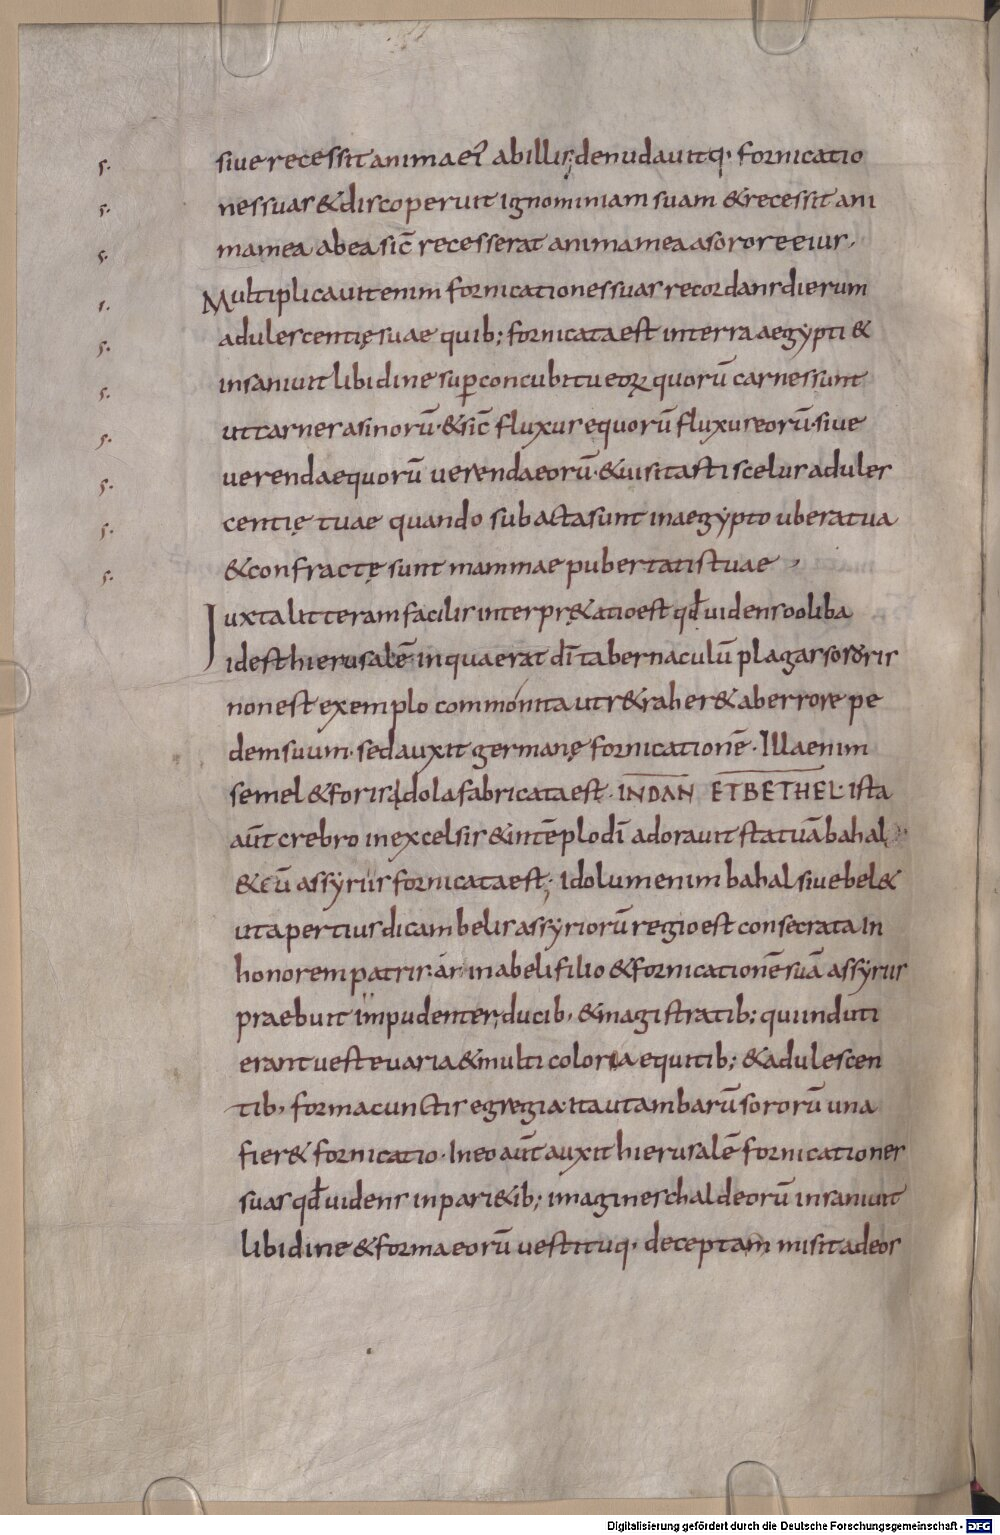 siue recessit anima ei' ab illis; denudauitq· fornicatio
nes suas & discoperuit ignominiam suam & recessit ani
ma mea ab ea sic̄ recesserat anima mea a sorore eius,
Multiplicauit enim fornicationes suas recordans dierum
adulescentię suae quib; fornicata est in terra aegypti &
insaniuit libidine sup̲ concubitu eoꝝ quorū carnes sunt
ut carnes asinorū· & sic̄ fluxus equorū fluxus eorū· siue
uerenda equorū uerenda eorū· & uisitasti scelus adules
centię tuae quando subacta sunt in aegypto ubera tua
& confractę sunt mammae pubertatis tuae ,
Iuxta litteram facilis interpr&atio est qđ uidens ooliba
id est hierusalē in qua erat dī tabernaculū plagas sororis
non est exemplo commonita ut r&raher& ab errore pe
dem suum· sed auxit germanę fornicationē· Illa enim
semel & foris idola fabricata est· IN DAN ET BETHEL· ista
aūt crebro in excelsis & in tēplo dī adorauit statuā bahal
& cū assyriis fornicata est; Idolum enim bahal siue bel &
ut apertius dicam belis assyriorū regio est consecrata in
honorem patris a nino beli filio & fornicationē suā assyriis
praebuit impudenter; ducib; & magistratib; qui induti
erant ueste uaria & multicoloria equitib; & adulescen
tib; forma cunctis egregia· ita ut ambarū sororū una
fier& fornicatio· In eo aūt auxit hierusalē fornicationes
suas qđ uidens in pari&ib; imagines chaldeorū insaniuit
libidine & forma eorū uestituq· deceptam misit ad eos
s.
s.
s.
s.
s.
s.
s.
s.
s.
s.
Digitalisierung gefördert durch die Deutsche Forschungsgemeinschaft - DFG